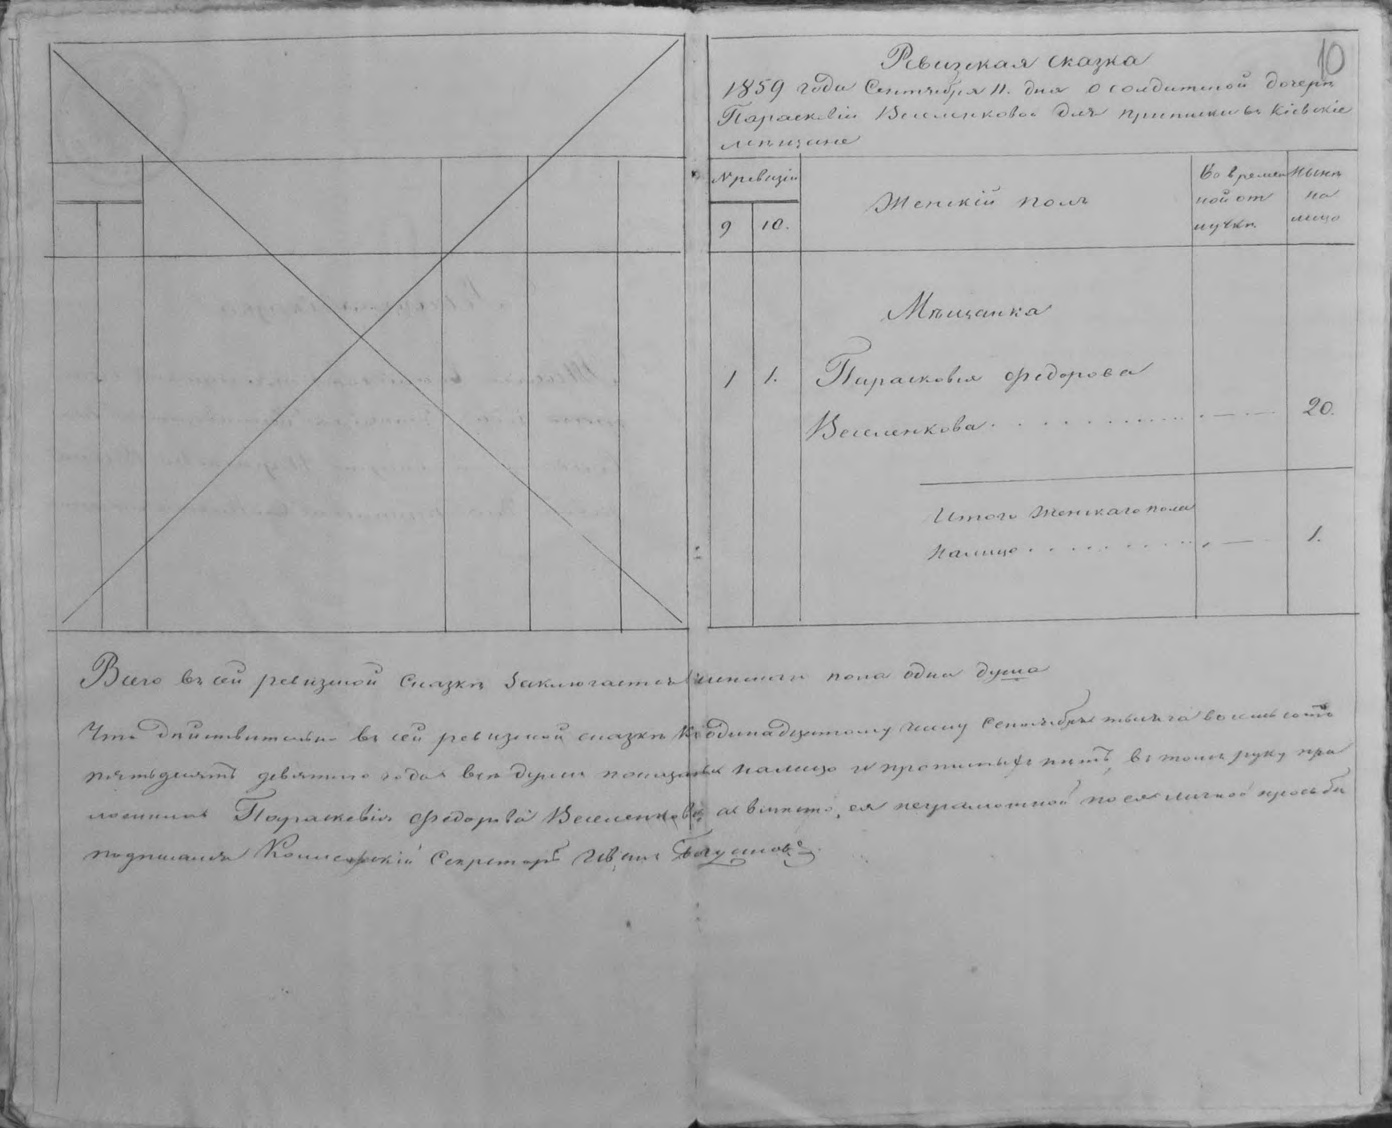 10
Ревизская сказка
1859 года Сентября 11. дня о солдатской дочери
Параскевіи Веселенковой для приписки въ Кіевскіе
мѣщане
№ ревизіи
9
10.
Женскій полъ
Во времен
ной от
лучкѣ
Нынѣ
на
лицо
Мѣщанка
1 1. Парасковія Федорова
Веселенкова 20.
Итого Женскаго пола
Налицо 1.
Всего въ сей ревизской сказкѣ заключается женскаго пола одна душа
Что дѣйствительно въ сей ревизской сказкѣ къ одинадцатому числу Сентября тысяча восемь сотъ
пятьдесятъ девятаго года всѣ души показаны налицо и прописныхъ нѣтъ, въ томъ руку при
ложила Параскевія Федорова Веселенкова а вмѣсто ея неграмотной по ея личной просьбѣ
подписался Секретарь Иванъ